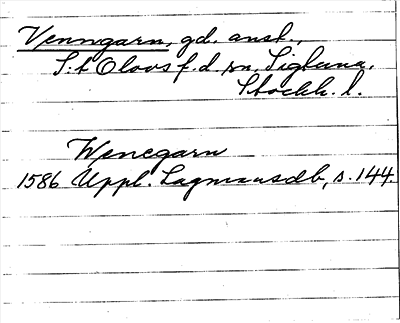 Venngarn, gd. anst.,
S:t Olovs f.d. sn, Sigtuna,
Stockh. l.
Wenegarn
1586 Uppl. Lagmansdb, s. 144.